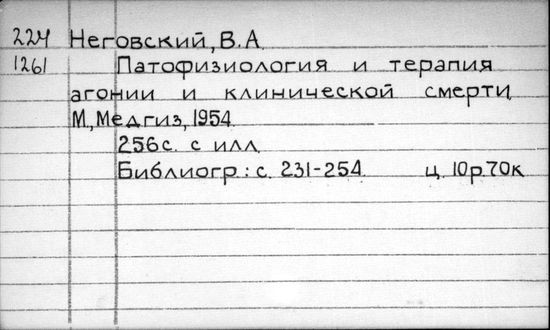 224 Неговский, В.А.
1261 Патофизиология и терапия
агонии и клинической смерти.
М., Медгиз, 1954.
256с. с илл.
Библиогр: с. 231-254. ц. 10р.70к